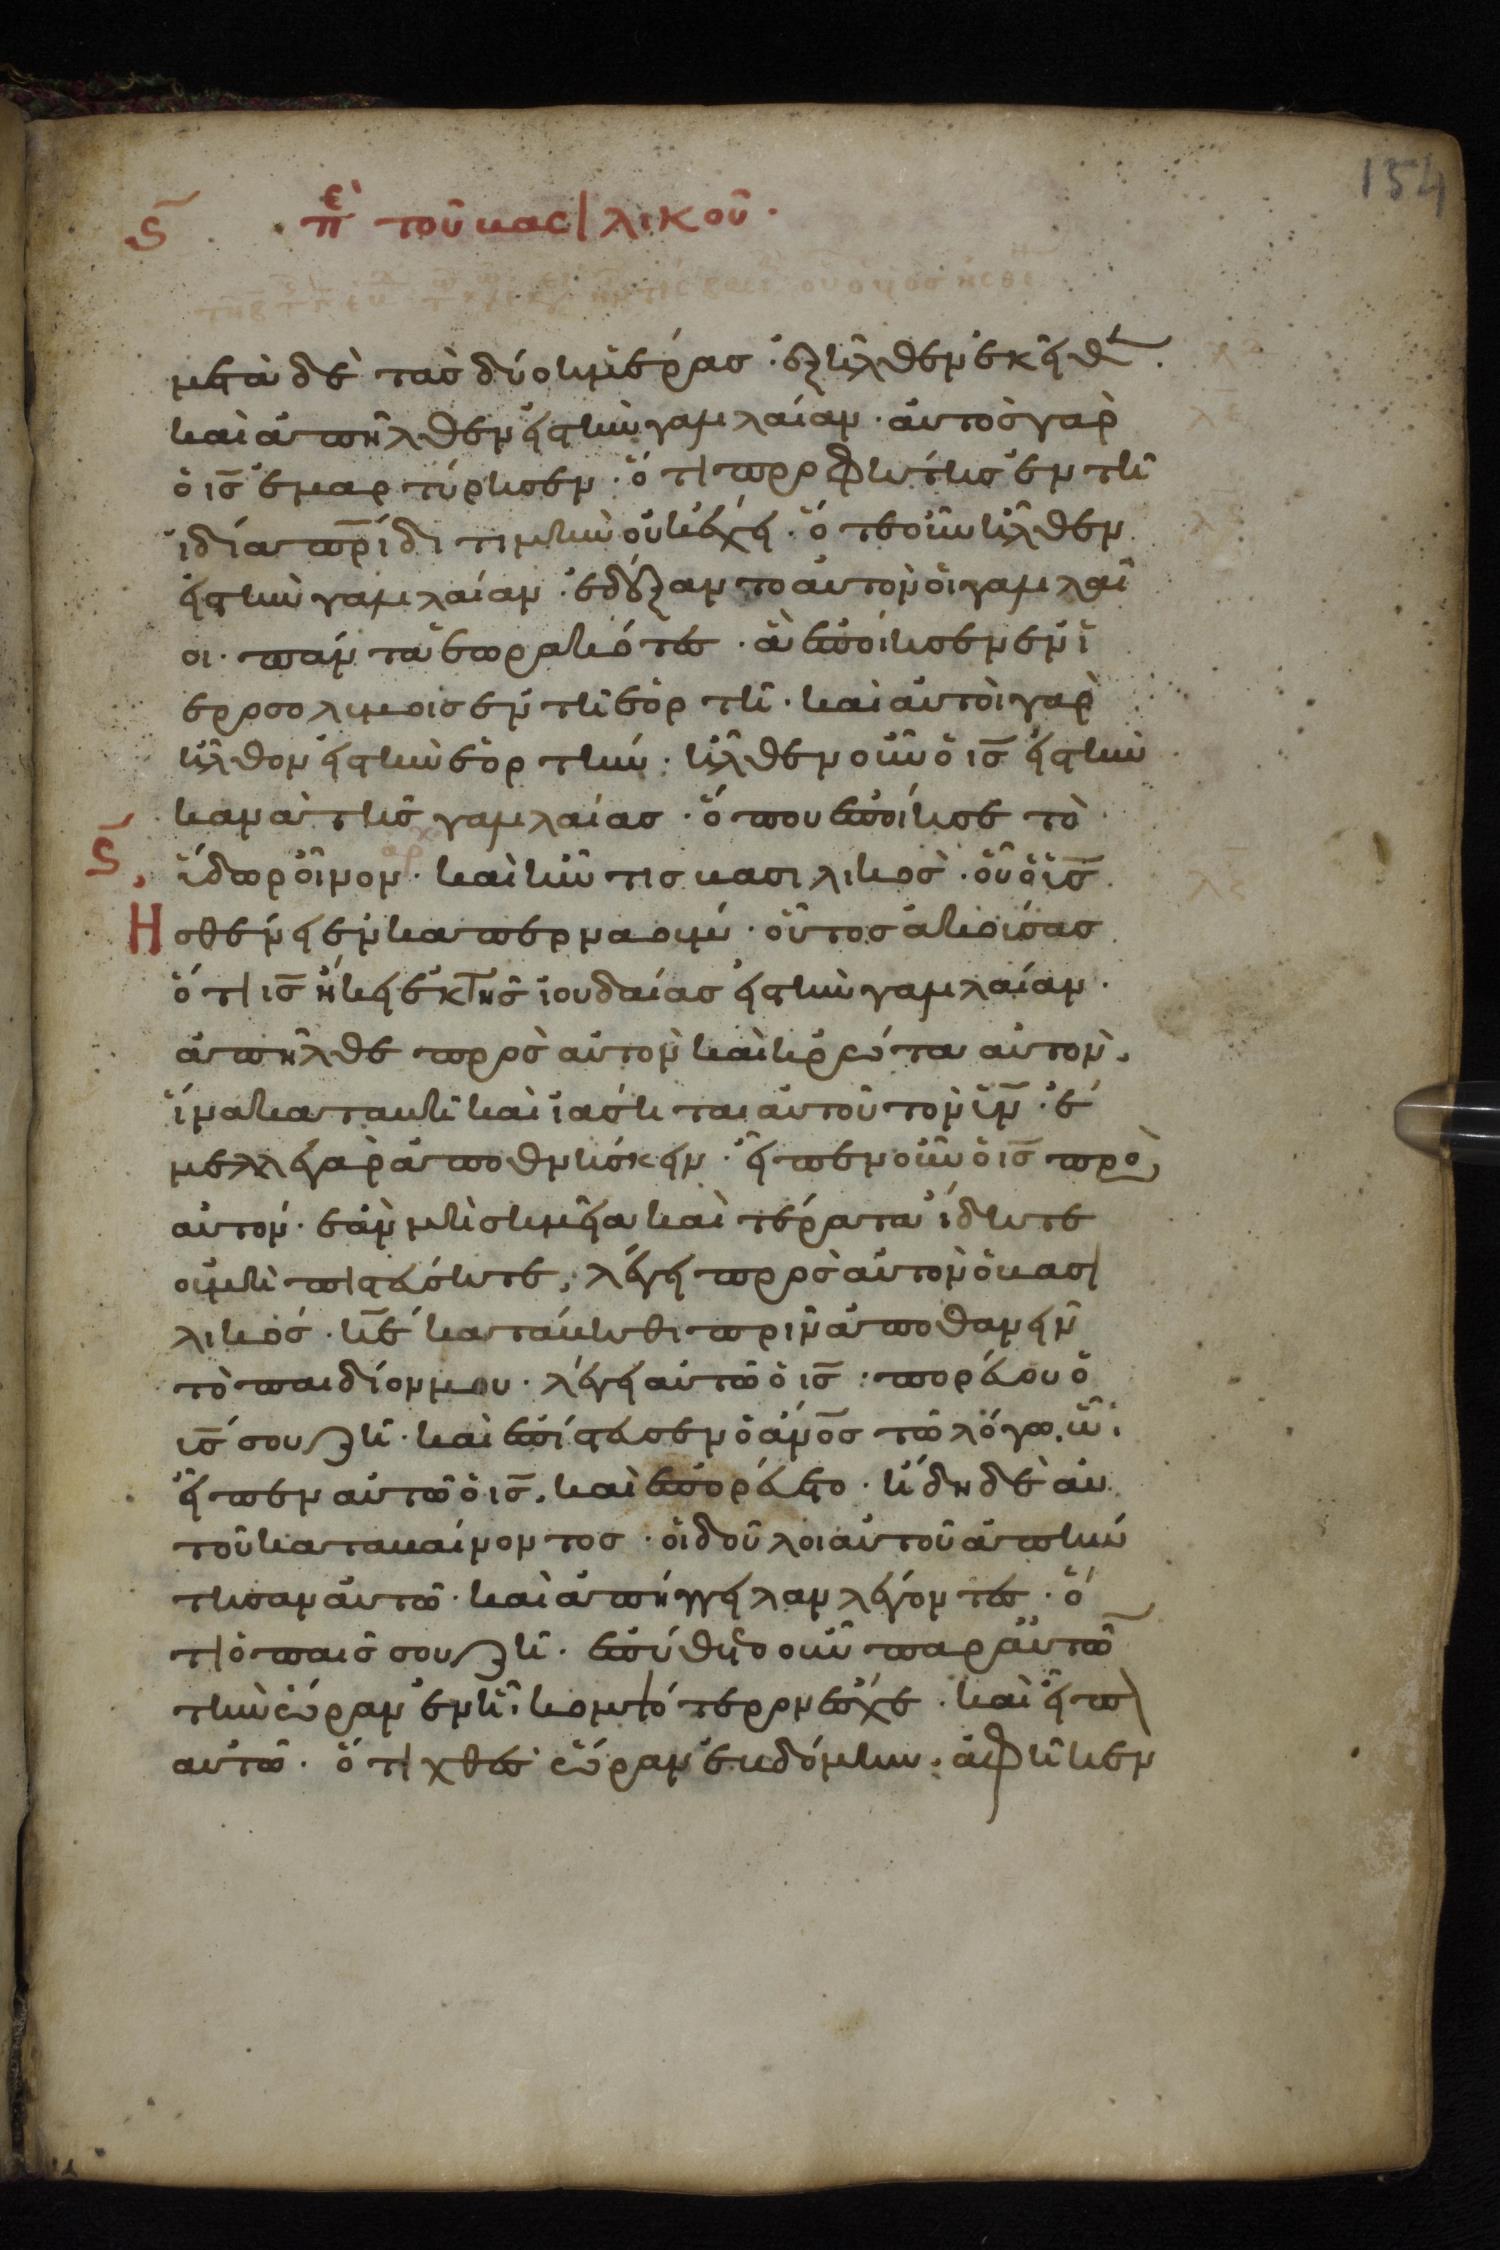 154
ϛ̄ πὲ τοῦ βασιλικοῦ·
μετὰ δὲ τὰσ δύο ἡμέρασ· ἐξῆλθεν ἐκεῖθ(εν)·
καὶ ἀπῆλθεν εἰς τὴν γαλιλαίαν· αὐτὸσ γὰρ
ὁ ις̄ ἐμαρτύρησεν· ὅτι προφήτησ ἐν τῆ
ἰδία πρ̄ίδι τιμὴν οὐκ ἔχει· ὅτε οὖν ἦλθεν
εἰς τὴν γαλιλαίαν· ἐδέξαντο αὐτὸν οἱ γαλιλαῖ
οι· πάντα ἑωρακότες· ἃ ἐποίησεν ἐν ἱ
εροσολύμοισ ἐν τῆ ἑορτῆ· καὶ αὐτοὶ γὰρ
ἦλθον εἰς τὴν ἑορτήν· ἦλθεν οὖν ὁ ις̄ εἰς τὴν
κανὰ τῆσ γαλιλαίασ· ὅπου ἐποίησε τὸ
ϛ̄ ὕδωρ οἶνον· καὶ ἦν τισ βασιλικὸσ· οὗ ὁ ϋἱς̄
Ησθένει ἐν καπερναούμ· οὗτοσ ἀκούσασ
ὅτι ις̄ ἥκει ἐκ τῆσ ἰουδαίασ εἰς τὴν γαλιλαίαν·
ἀπῆλθε πρὸσ αὐτὸν καὶ ἠρώτα αὐτὸν,
ἵνα καταβῆ καὶ ἰάσηται αὐτοῦ τὸν ὑν̄· ἔ
μελλε γὰρ ἀποθνήσκειν· εἶπεν οὖν ὁ ις̄ πρὸσ
αὐτόν· ἐὰν μὴ σημεῖα καὶ τέρατα ἴδητε
οὐ μὴ πιστεύσητε, λέγει πρὸσ αὐτὸν ὁ βασι
λικόσ· κε̄ κατάβηθι πρὶν ἀποθανεῖν
τὸ παιδίον μου· λέγει αὐτῶ ὁ ις̄· πορεύου ὁ
ὑς̄ σου ζῆ· καὶ ἐπίστευσεν ὁ ἄνο̄σ τῶ λόγω, ὧ
εἶπεν αὐτῶ ὁ ις̄, καὶ ἐπορεύετο· ἤδη δὲ αὐ
τοῦ καταβαίνοντοσ· οἱ δοῦλοι αὐτοῦ ἀπήν
τησαν αὐτῶ· καὶ ἀπήγγειλαν λέγοντες· ὅ
τι ὁ παῖσ σου ζῆ· ἐπύθετο οὖν παρ' αὐτῶν
τὴν ὥραν ἐν ἧ κομψότερον ἔσχε· καὶ εἶπον
αὐτῶ· ὅτι χθὲς ὥραν ἑβδόμην· ἀφῆκεν